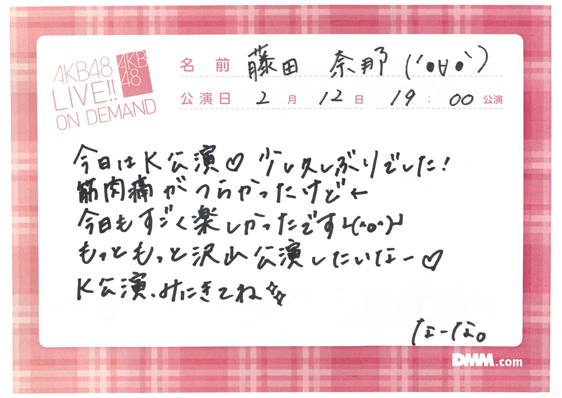 AKB48
LIVE!!
ON DEMAND
AKB
48
名前 藤田 奈那 (´●∀●`)
公演日 2月 12日 19:00 公演
今日はK公演♡ 少し久しぶりでした!
筋肉痛がつらかったけど←
今日もすごく楽しかったです╰(^o^)╯
もっともっと沢山公演したいなー♡
K公演、みにきてね☆☆
なーな。
DMM.com